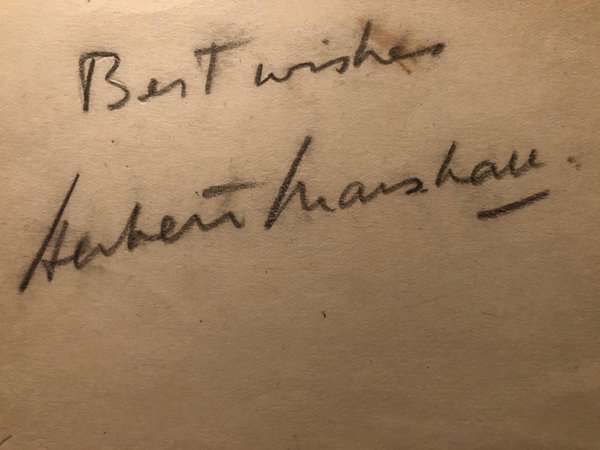 Best wishes
Herbert Marshall.